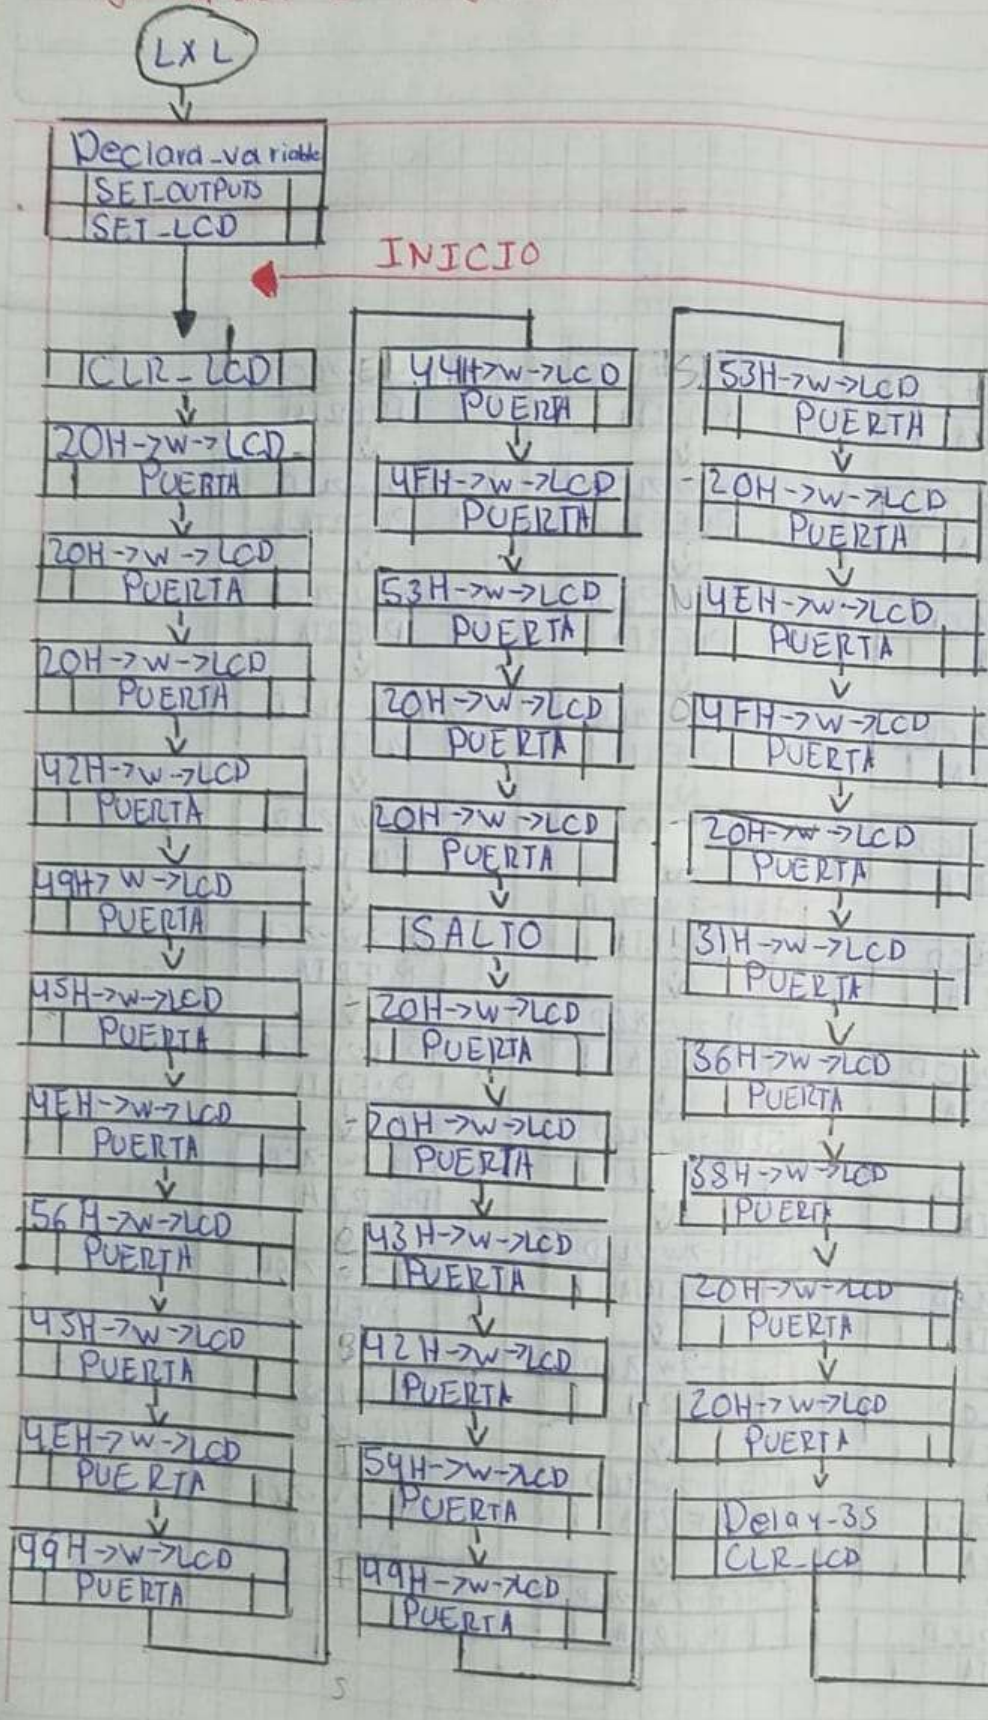 LXL
Declara_variable
SET_OUTPUTS
SET_LCD
INICIO
CLR_LCD
20H->W->LCD
PUERTA
20H->W->LCD
PUERTA
20H->W->LCD
PUERTA
42H->W->LCD
PUERTA
49H->W->LCD
PUERTA
45H->W->LCD
PUERTA
4EH->W->LCD
PUERTA
56H->W->LCD
PUERTA
45H->W->LCD
PUERTA
4EH->W->LCD
PUERTA
99H->W->LCD
PUERTA
44H->W->LCD
PUERTA
4FH->W->LCD
PUERTA
53H->W->LCD
PUERTA
20H->W->LCD
PUERTA
20H->W->LCD
PUERTA
SALTO
- 20H->W->LCD
PUERTA
- 20H->W->LCD
PUERTA
C 43H->W->LCD
PUERTA
B 42H->W->LCD
PUERTA
T 54H->W->LCD
PUERTA
I 99H->W->LCD
PUERTA
S 53H->W->LCD
PUERTA
- 20H->W->LCD
PUERTA
N 4EH->W->LCD
PUERTA
O 4FH->W->LCD
PUERTA
- 20H->W->LCD
PUERTA
31H->W->LCD
PUERTA
36H->W->LCD
PUERTA
38H->W->LCD
PUERTA
20H->W->LCD
PUERTA
20H->W->LCD
PUERTA
Delay-3S
CLR_LCD